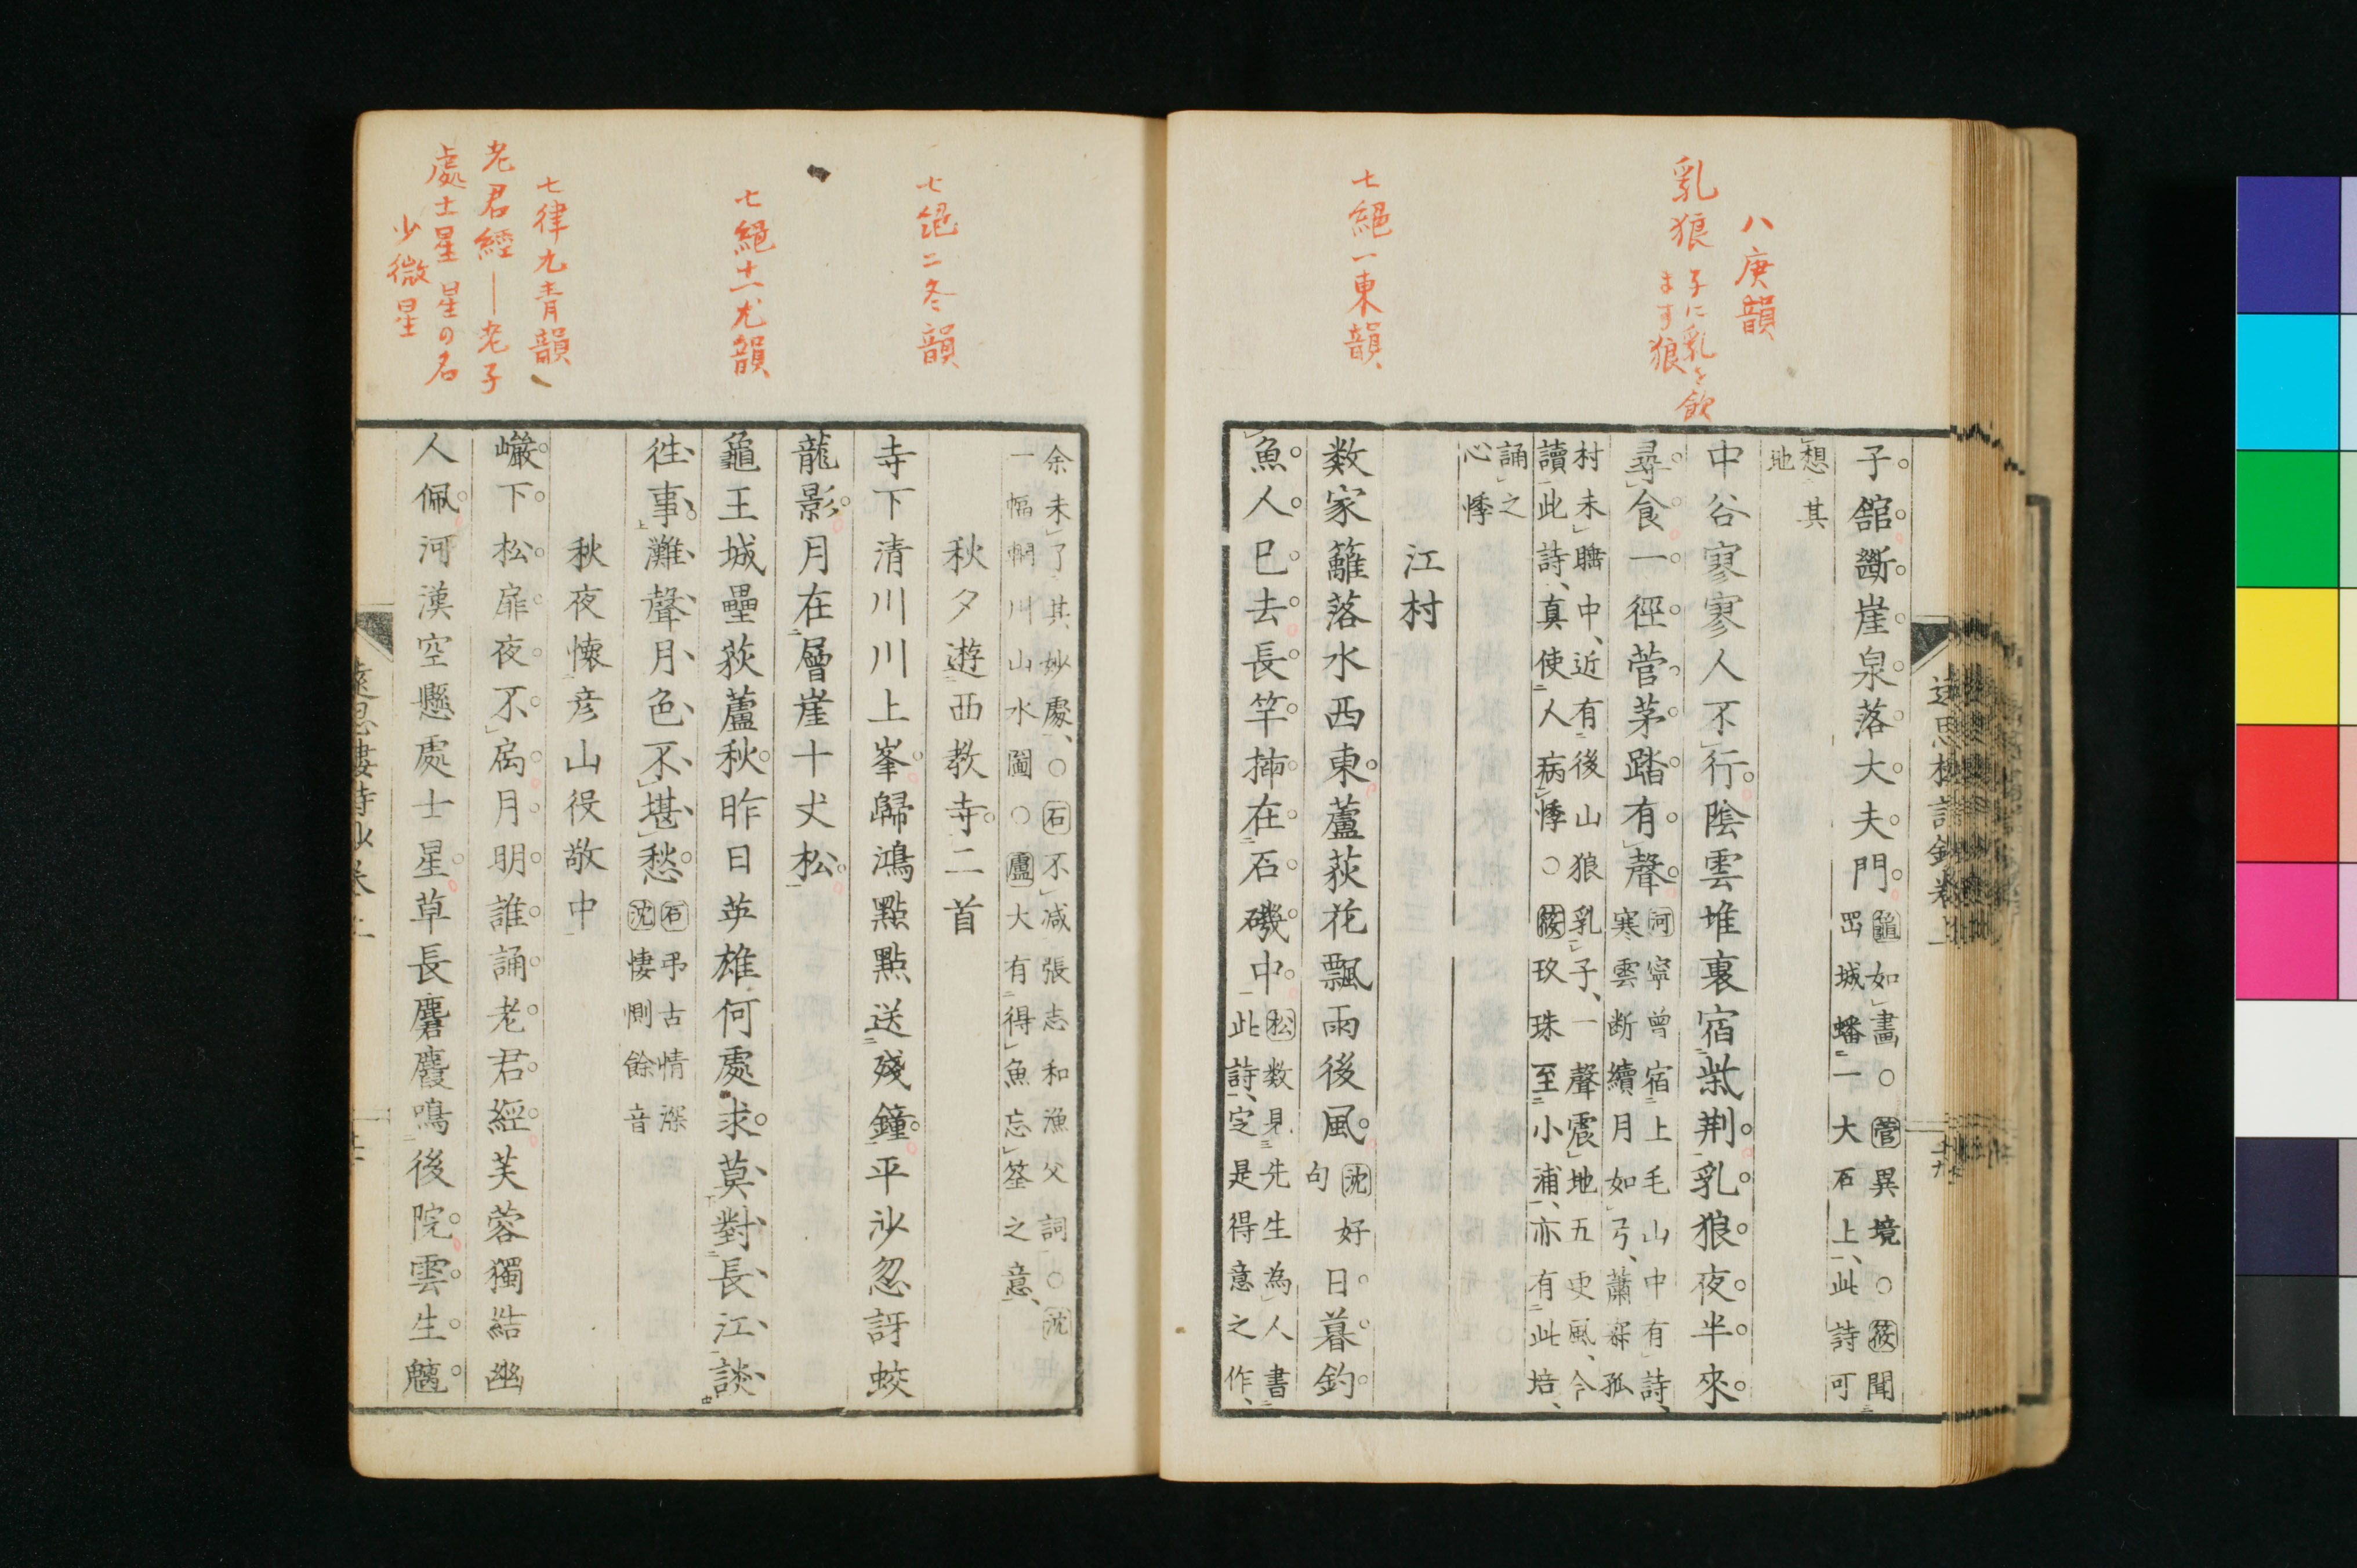 八庚韻
乳狼 子に乳を飲
ます狼
七絕一東韻
遠思樓詩鈔卷上
十九
子館斷崖泉落大夫門
龜如畫○菅異境○筱聞
罶城蟠二大石上此詩可
想其
地
中谷寥寥人不行陰雲堆裏宿紫荆乳狼夜半來
尋食一徑菅茅踏有聲
河寧曾宿上毛山中有詩
寒雲断續月如弓蕭寥孤
村未睡中近有後山狼乳子一聲震地五更風今
讀此詩真使人病悸○筱玫珠至小浦亦有此培
誦之
心悸
江村
数家籬落水西東蘆荻花飄雨後風
沈好
句
日暮釣
魚人已去長竿挿在石磯中
松数見先生為人書
此詩定是得意之作
七絕二冬韻
七絕十一尤韻
七律九青韻
老君經―老子
處士星 星の名
少微星
余未了其妙處○石不减張志和漁父詞○沈
一幅輞川山水圖○盧大有得魚忘筌之意
秋夕遊西教寺二首
寺下清川川上峯歸鴻點點送殘鐘平沙忽訝蛟
龍影月在層崖十丈松
龜王城壘荻蘆秋昨日英雄何處求莫對長江談
徃事灘聲月色不堪愁
石弔古情深
沈悽惻餘音
秋夜懷彦山役敬中
巖下松扉夜不扃月明誰誦老君經芙蓉獨結幽
人佩河漢空懸處士星草長麏麚鳴後院雲生魑
遠思樓詩鈔卷上